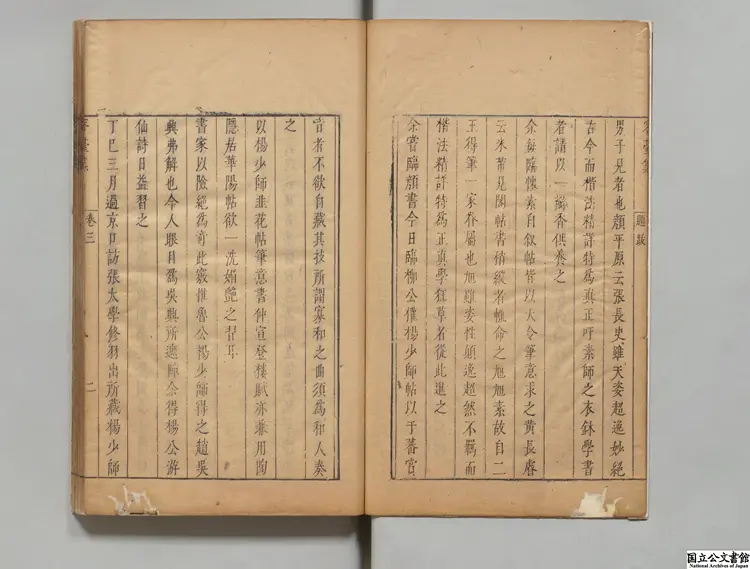 容臺集
題跋
男子見者也顏平原云張長史雖天姿超逸妙絕
古今而楷法精詳特為真正吁素師之衣鉢學書
者請以一瓣香供養之
余每臨懷素自敘帖皆以大令筆意求之黃長睿
云米芾見閣帖書稍縱者輒命之旭旭素故自二
王得筆一家眷屬也旭雖姿性顛逸超然不羈而
楷法精詳特為正真學狂草者從此進之
余嘗臨顏書今日臨柳公權楊少師帖以于蕃官
音者不欲自藏其技所謂寡和之曲須為和人奏
之
以楊少師韭花帖筆意書仲宣登樓賦亦兼用陶
隱居華陽帖欲一洗媚艷之習耳
書家以險絕為奇此竅惟魯公楊少師得之趙吳
興弗解也今人眼目為吳興所遮障余得楊公游
仙詩日益習之
丁巳三月過京口訪張太學修羽出所藏楊少師
容臺集
卷三
二
国立公文書館
National Archives of Japan